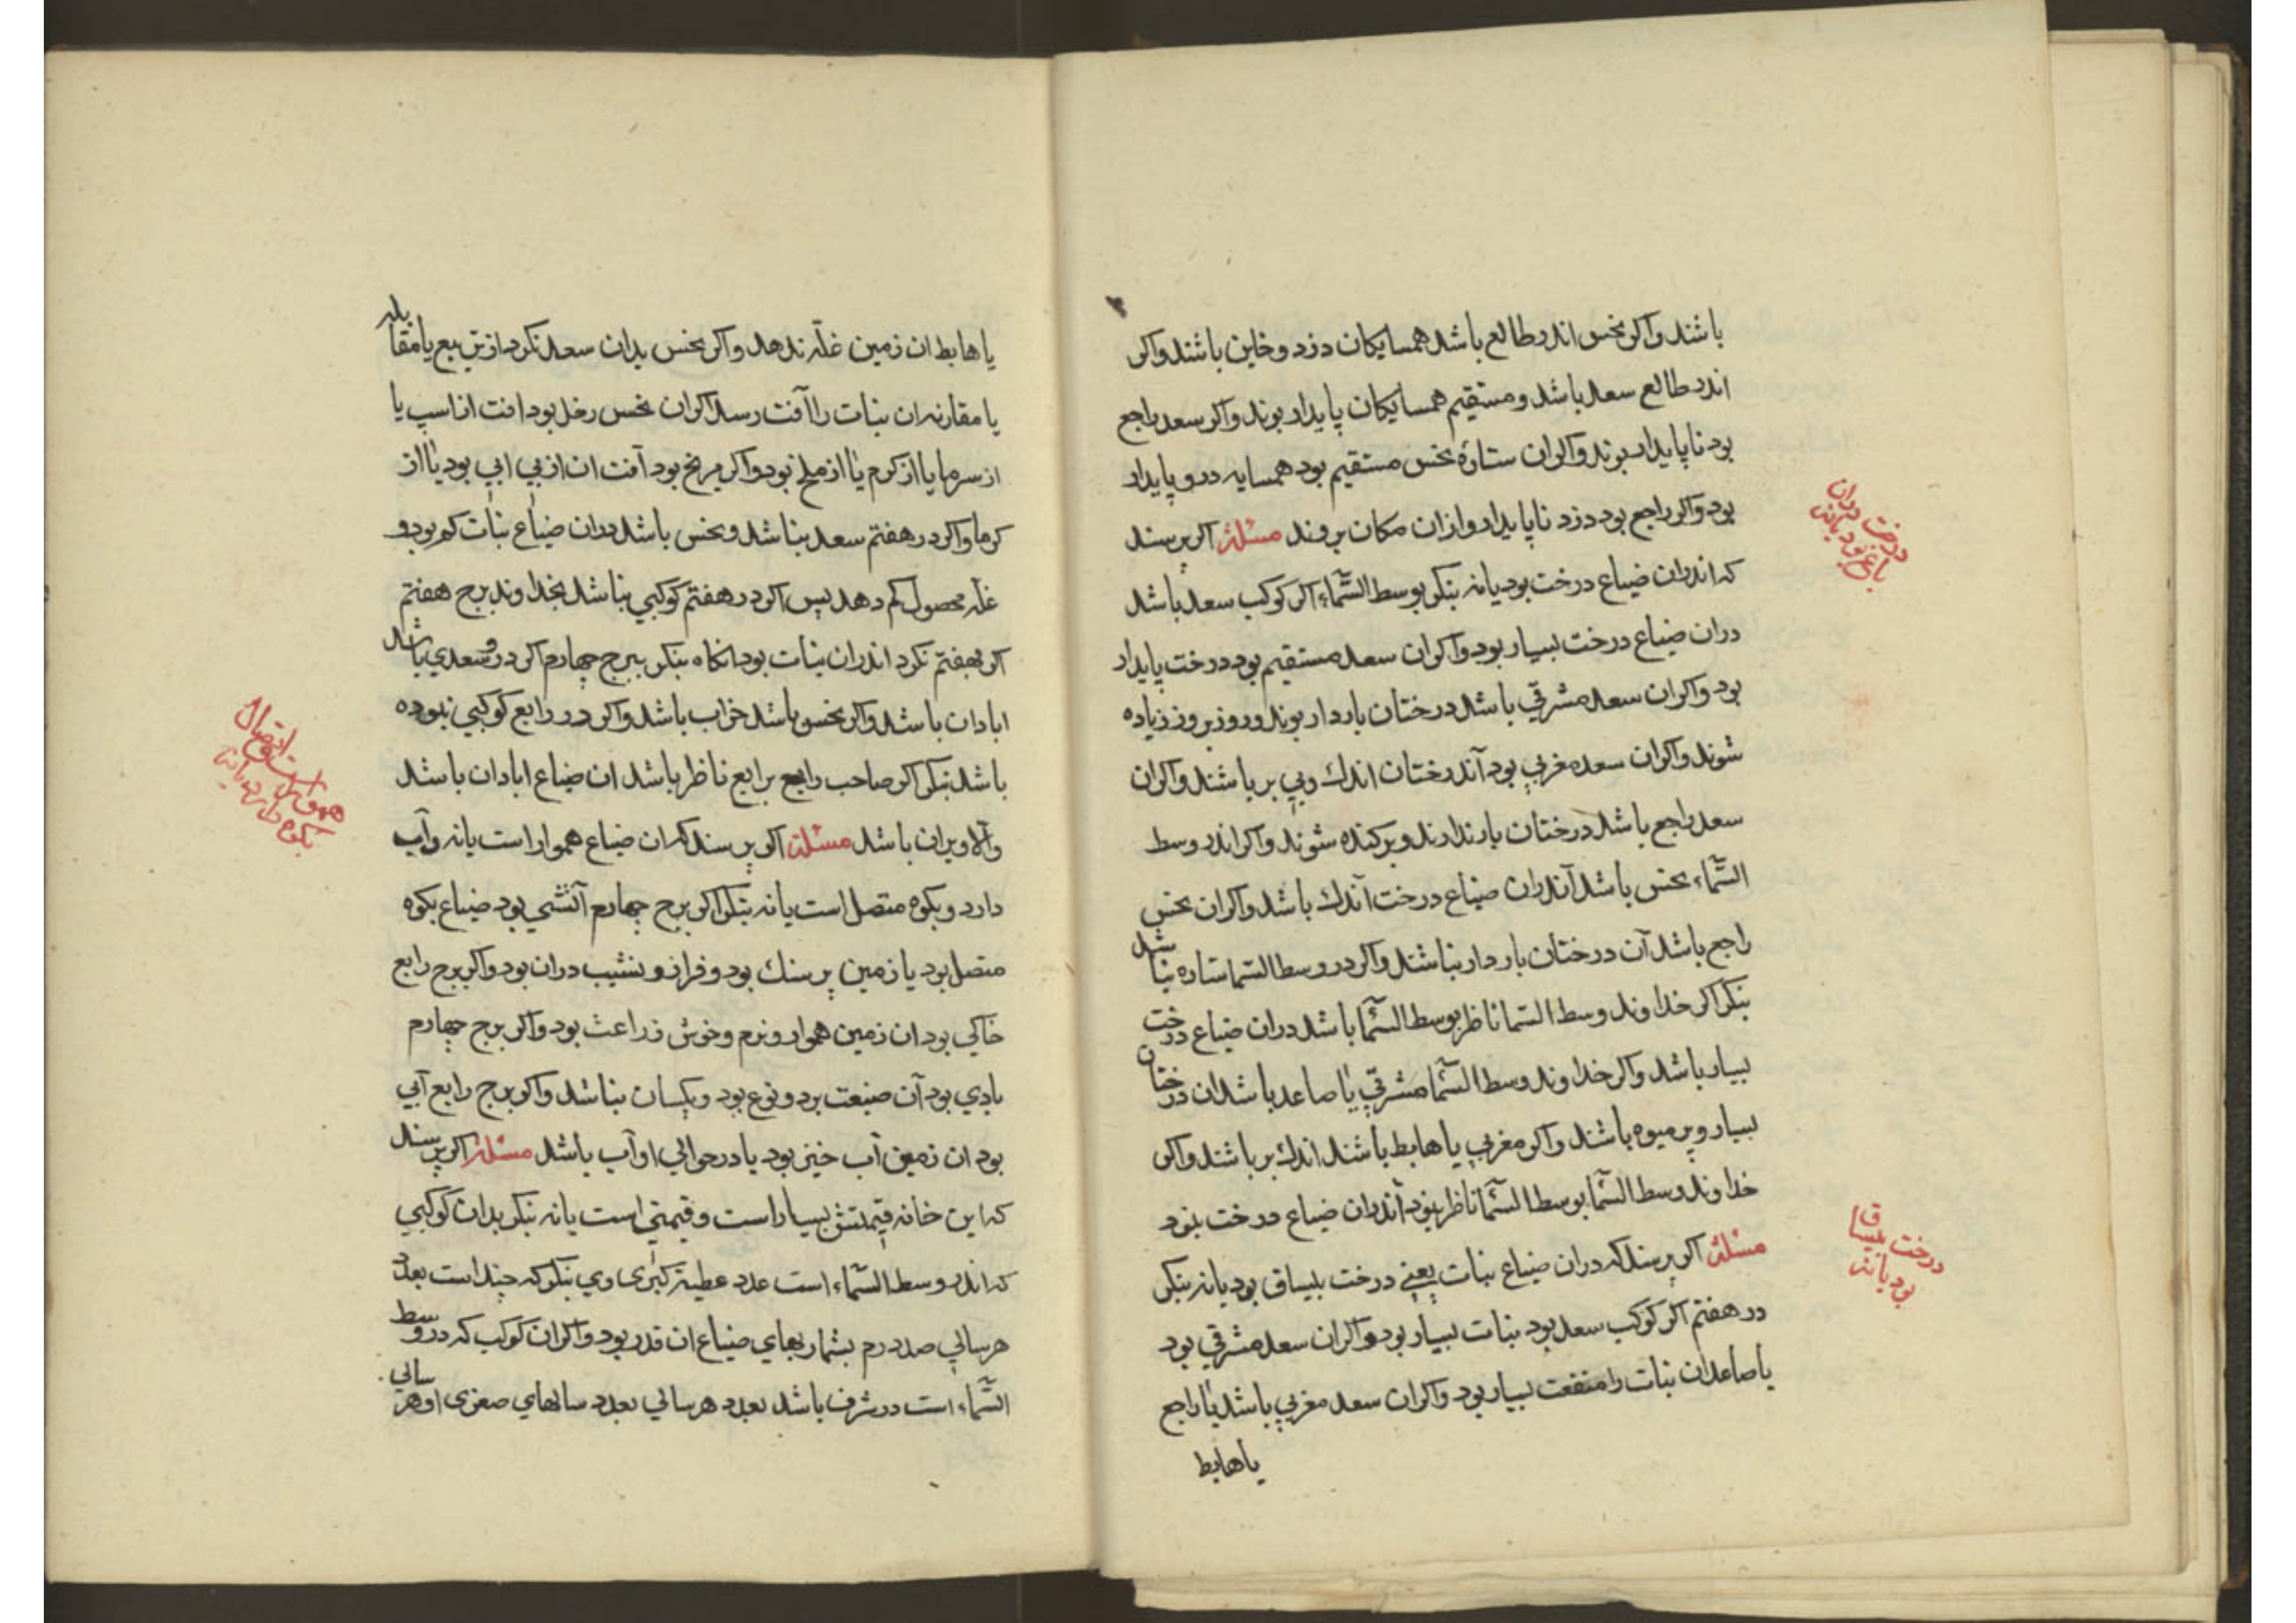 باشند واکر نحس اندر طالع باشد همسایکان دزد و خاین باشند واکر
اندر طالع سعد باشد و مستقیم همسایکان پایدار بوند واکر سعد راجع
بود ناپایدار بوند واکران ستارۀ نحس مستقیم بود همسایه درو پایدار
بود واکر راجع بود دزد ناپایدار وازان مکان بروند مسئلة اکر پرسند
که اندران ضیاع درخت بود یا نه بنکر بوسط السّماء اکر کوکب سعد باشد
دران ضیاع درخت بسیار بود واکران سعد مستقیم بود درخت پایدار
بود واکران سعد مشرقي باشد درختان باردار بوند و روز بروز زیاده
شوند واکران سعد مغربي بود آندرختان اندك وبي بر باشند واکران
سعد راجع باشد درختان بار ندارند و برکنده شوند واکر اندر وسط
السّماء نحس باشد آندران ضیاع درخت آندك باشد واکران نحس
راجع باشد آن درختان باردار نباشند واکر در وسط السما ستاره نباشد
بنکر اکر خداوند وسط السما ناظر بوسط السّما باشد دران ضیاع درخت
بسیار باشد واکر خداوند وسط السّما مشرقي یا صاعد باشد ان درختان
بسیار و پر میوه باشند واکر مغربي یا هابط باشند اندك بر باشند واکر
خداوند وسط السّما بوسط السّما ناظر نبود آندران ضیاع درخت نبود
مسئلة اکر پرسند که دران ضیاع نبات یعني درخت بلیساق بود یا نه بنکر
در هفتم اکر کوکب سعد بود نبات بسیار بود واکران سعد مشرقي بود
یا صاعد ان نبات را منفعت بسیار بود واکران سعد مغربي باشد یا راجع
یا هابط
درخت دران
باغ بود یا نه
درخت بلیساق
بود یا نه
یا هابط ان زمین غلّه ندهد واکر نحس بدان سعد نکرد از تربیع یا مقابله
یا مقارنه ان نبات را آفت رسد اکران نحس زحل بود افت ان اسب یا
از سرما یا از کرم یا از ملخ بود واکر مریخ بود آفت ان از بي ابي بود یا از
کرما واکر در هفتم سعد نباشد و نحس باشد دران ضیاع نبات کم بود و
غلّه محصول کم دهد پس اکر در هفتم کوکبي نباشد بخداوند برج هفتم
اکر بهفتم نکرد اندران نبات بود انکاه بنکر ببرج چهارم اکر درو سعدي باشد
ابادان باشد واکر نحس باشد خراب باشد واکر در رابع کوکبي نبوده
باشد بنکر اکر صاحب رابع برابع ناظر باشد ان ضیاع ابادان باشد
والا ویران باشد مسئلة اکر پرسند که ان ضیاع هموار است یا نه وآب
دارد و بکوه متصل است یا نه بنکر اکر برج چهارم آتشي بود ضیاع بکوه
متصل بود یا زمین پر سنك بود و فراز و نشیب دران بود واکر برج رابع
خاکي بود ان زمین هموار و نرم و خوش زراعت بود واکر برج چهارم
بادي بود آن صنیعت بر دو نوع بود و یکسان نباشد واکر برج رابع آبي
بود ان زمین آب خیز بود یا در حوالي او آب باشد مسئلة اکر پرسند
که این خانه قیمتش بسیار است و قیمتي است یا نه بنکر بدان کوکبي
که اندر وسط السّماء است عدد عطیۀ کبری وي بنکر که چند است بعدد
هر سالي صد درم بشمار بهاي ضیاع ان قدر بود واکران کوکب که در وسط
السّماء است در شرف باشد بعدد هر سالي بعدد سالهاي صغری او هر سالي
بکوه دارد یا نه